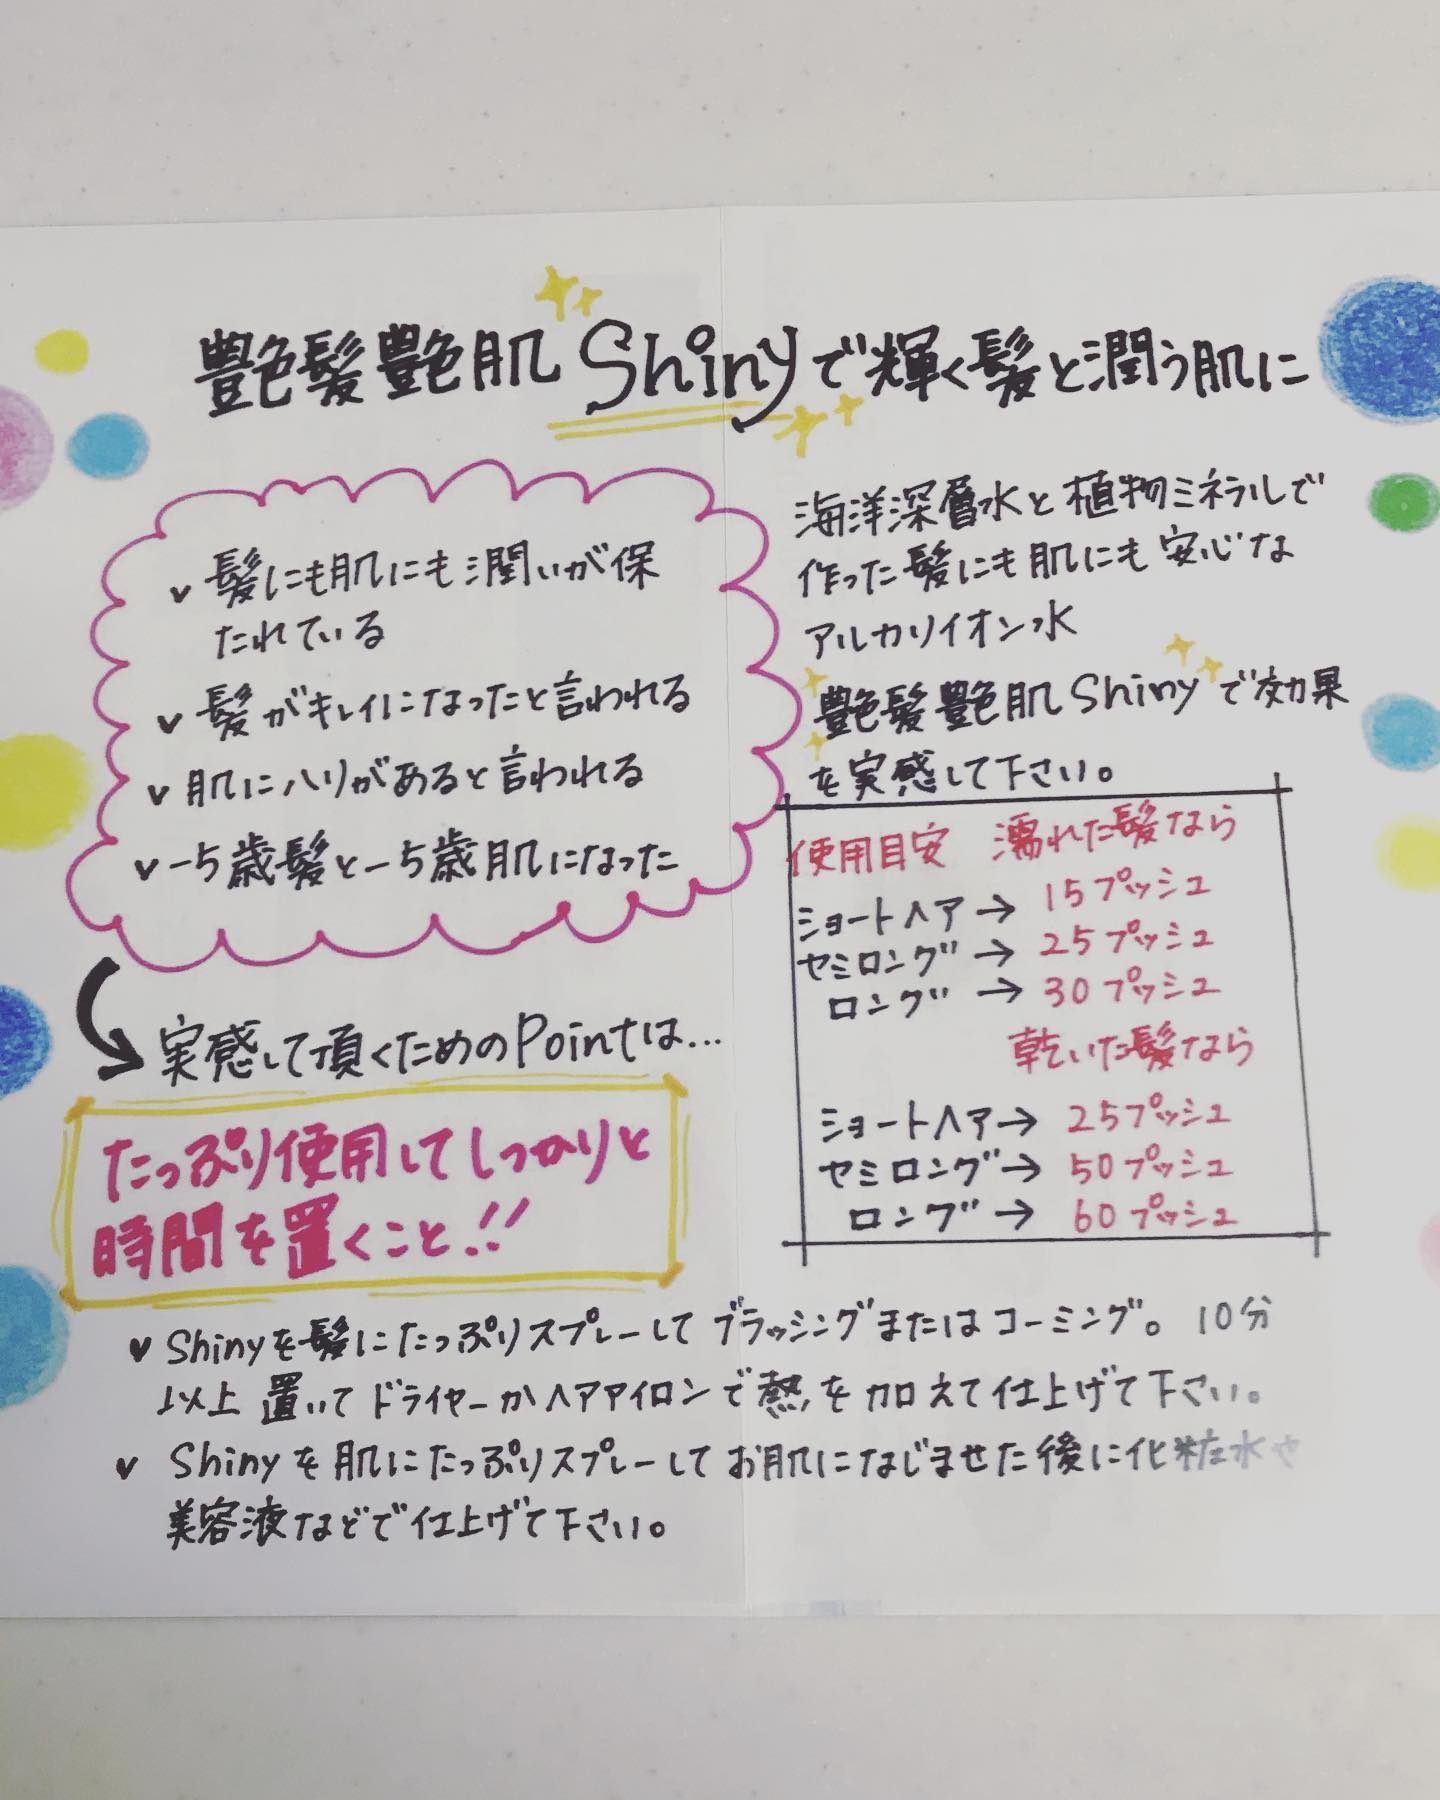 艶髪艶肌Shinyで輝く髪と潤う肌に
髪にも肌にも潤いが保
たれている
髪がキレイになったと言われる
肌にハリがあると言われる
-5歳髪と-5歳肌になった
実感して頂くためのPointは...
たっぷり使用してしっかりと
時間を置くこと!!
海洋深層水と植物ミネラルで
作った髪にも肌にも安心な
アルカリイオン水
艶髪艶肌Shinyで効果
を実感して下さい。
使用目安 濡れた髪なら
ショートヘア→15プッシュ
セミロング→25プッシュ
ロング→30プッシュ
乾いた髪なら
ショートヘア→25プッシュ
セミロング→50プッシュ
ロング→60プッシュ
Shinyを髪にたっぷりスプレーしてブラッシングまたはコーミング。10分
以上置いてドライヤーかヘアアイロンで熱を加えて仕上げて下さい。
Shinyを肌にたっぷりスプレーしてお肌になじませた後に化粧水や
美容液などで仕上げて下さい。